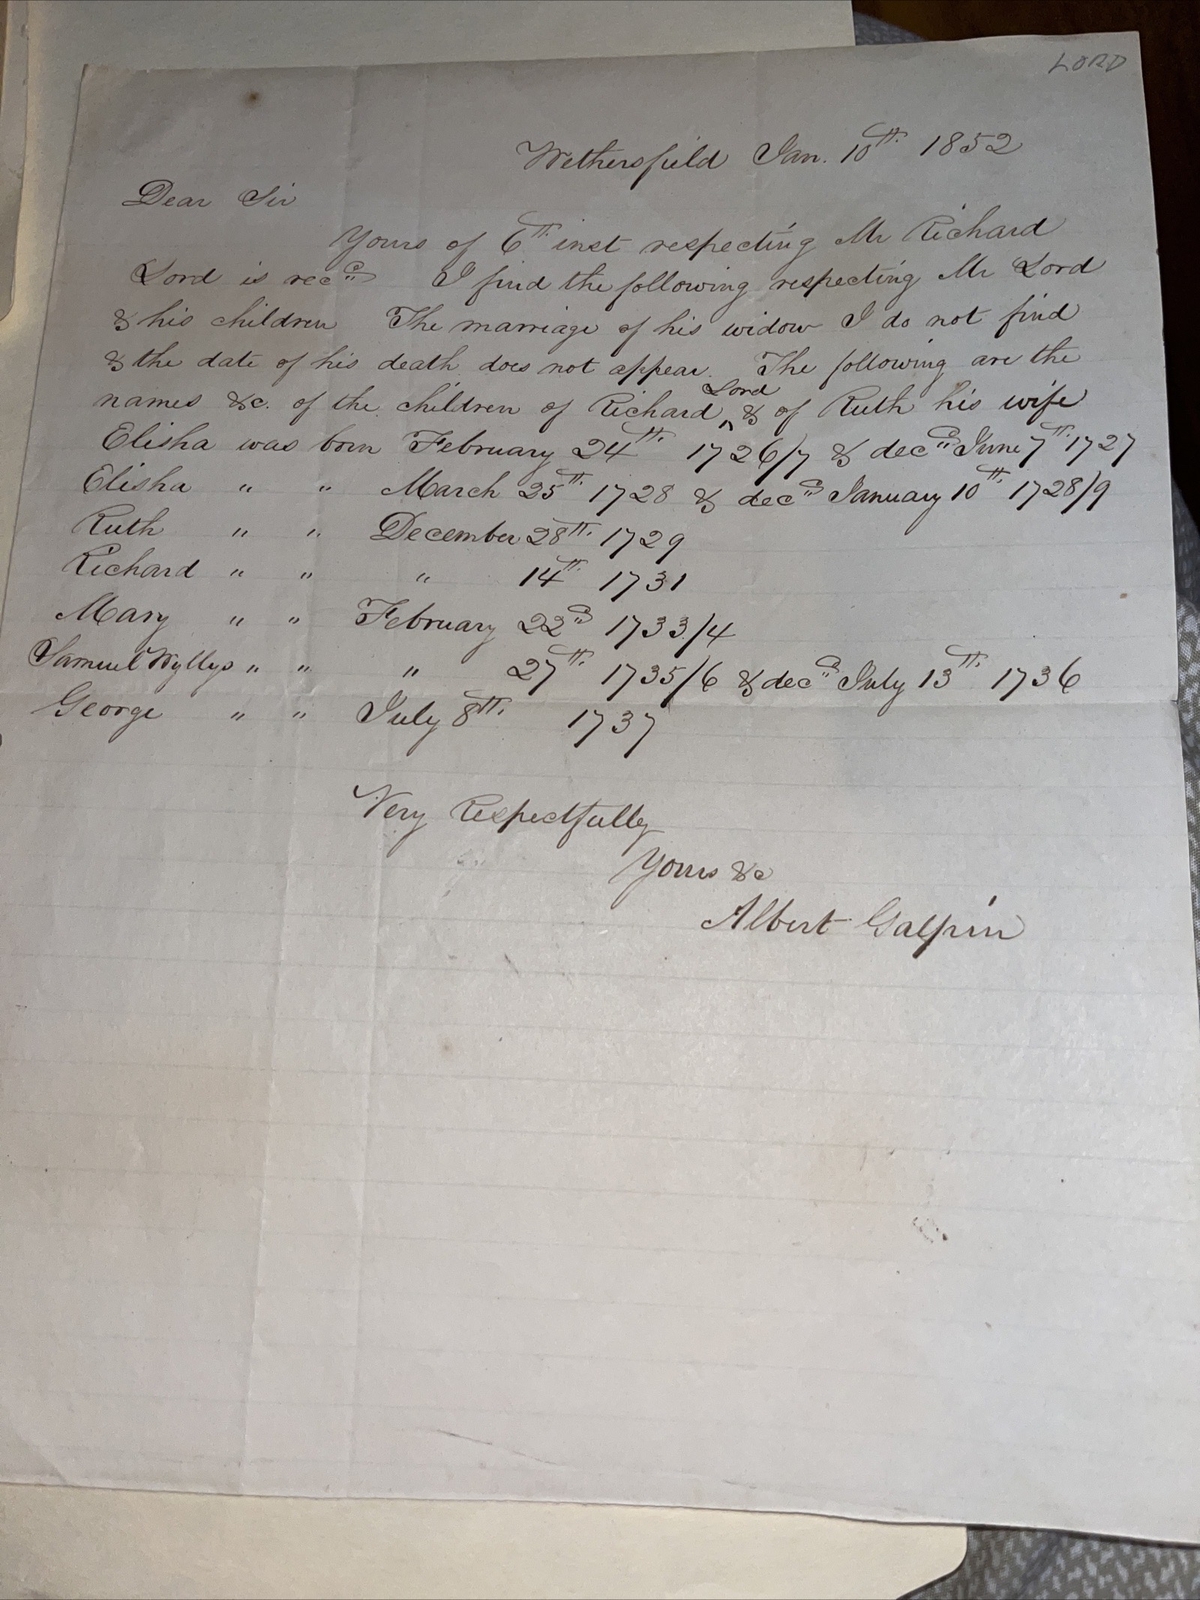 LORD
Wethersfield Jan. 10th. 1852
Dear Sir
Yours of 6th. inst respecting Mr Richard
Lord is recd. I find the following respecting Mr Lord
& his children The marriage of his widow I do not find
& the date of his death does not appear. The following are the
names &c. of the children of Richard ^ Lord & of Ruth his wife
Elisha was born February 24th. 1726/7 & decd. June 7th. 1727
Elisha " " March 25th. 1728 & decd. January 10th. 1728/9
Ruth " " December 28th. 1729
Richard " " " 14th. 1731
Mary " " February 22d 1733/4
Samuel Wyllys " " " 27th. 1735/6 & decd. July 13th. 1736
George " " July 8th. 1737
Very Respectfully
Yours &c
Albert Galpin